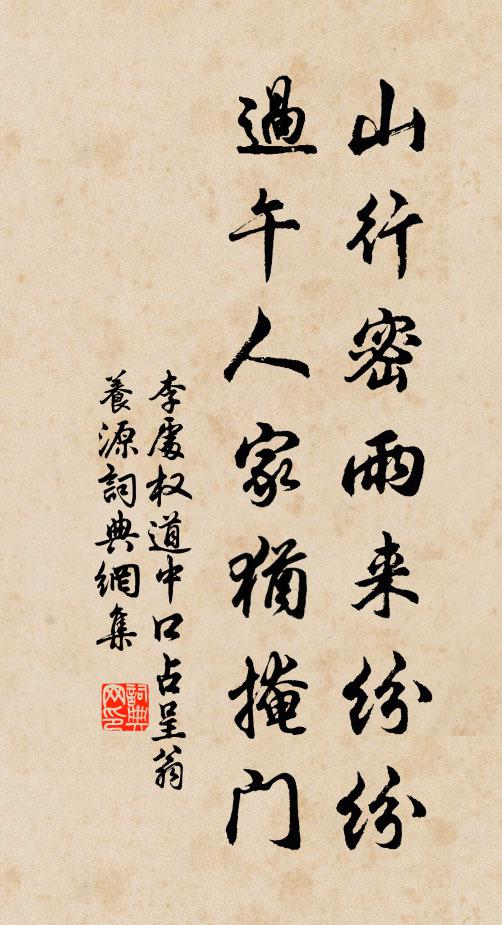 山行密雨来纷纷
過午人家猶掩门
李處权道中口占呈翁
養源詞典網集
詞典
网印